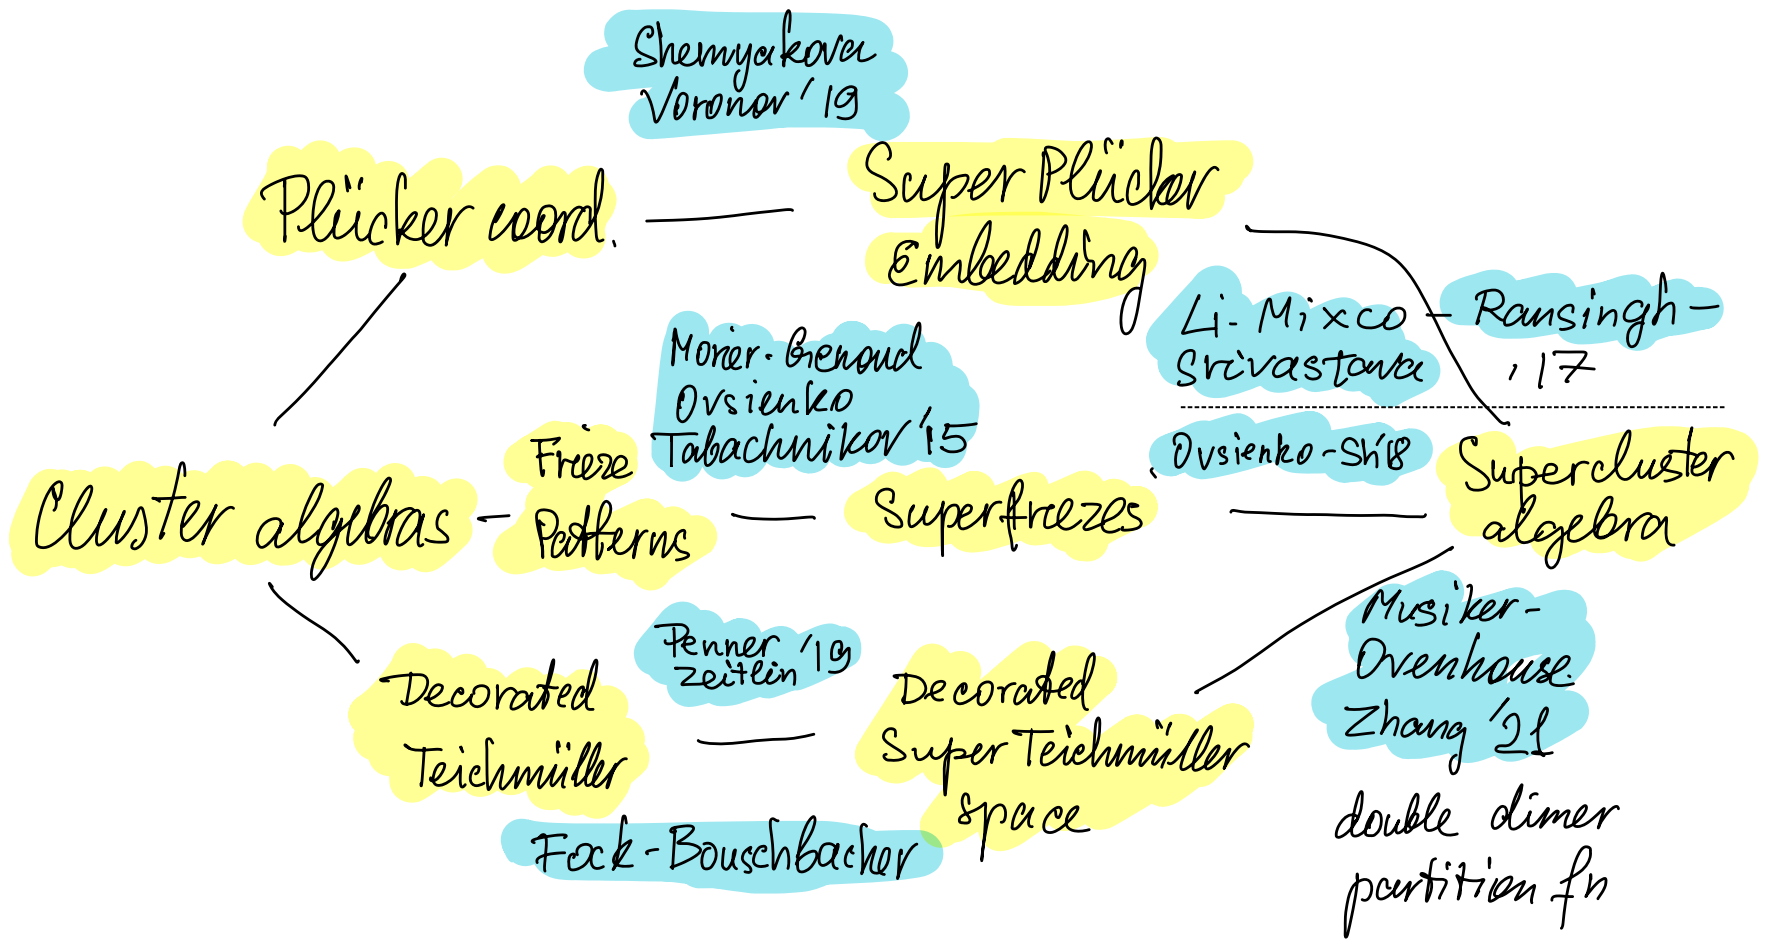 Shemyakova
Voronov '19
Plücker coord.
Super Plücker
Embedding
Li - Mixco - Ransingh -
Srivastava '17
Morier-Genoud
Ovsienko
Tabachnikov '15
Ovsienko - Sh '18
Cluster algebras
Frieze
Patterns
Superfriezes
Supercluster
algebra
Penner '19
Zeitlin
Decorated
Teichmüller
Decorated
Super Teichmüller
space
Musiker -
Ovenhouse.
Zhang '21
Fock - Bouschbacher
double dimer
partition fn